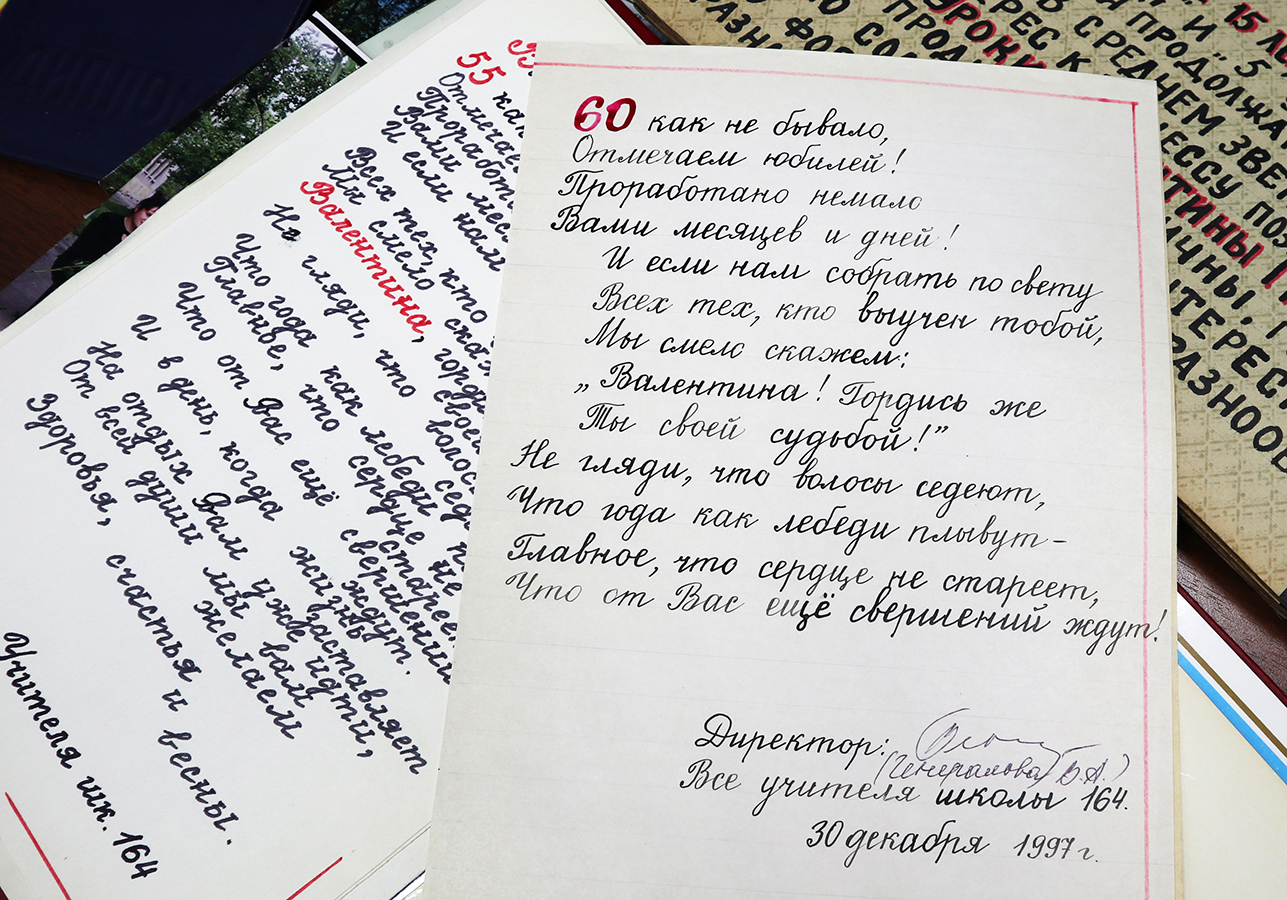 60 как не бывало,
Отмечаем юбилей!
Проработано немало
Вами месяцев и дней!
И если нам собрать по свету
Всех тех, кто выучен тобой,
Мы смело скажем:
„Валентина! Гордись же
Ты своей судьбой!”
Не гляди, что волосы седеют,
Что года как лебеди плывут –
Главное, что сердце не стареет,
Что от Вас ещё свершений ждут!
Директор:
(Генералова Б.А.)
Все учителя школы 164.
30 декабря 1997 г.
55 как
Отмечае
Проработ
Вами мес
И если нам
Всех тех, кто
Мы смело скаж
Валентина, горди
Не гляди, что волос
Что года как лебеди
Главное, что сердце не старее
Что от Вас ещё свершений ждут.
И в день, когда жизнь заставляет
На отдых Вам уже идти,
От всей души мы вам желаем
Здоровья, счастья и весны.
Учителя шк. 164
15 ЛЕ
УРОКИ
И ПРОДОЛЖА
СРЕДНЕМ ЗВЕ
ЕССУ ПОЗ
ТИНЫ
ИЧНЫ,
ТЕРЕС
РАЗНООБ